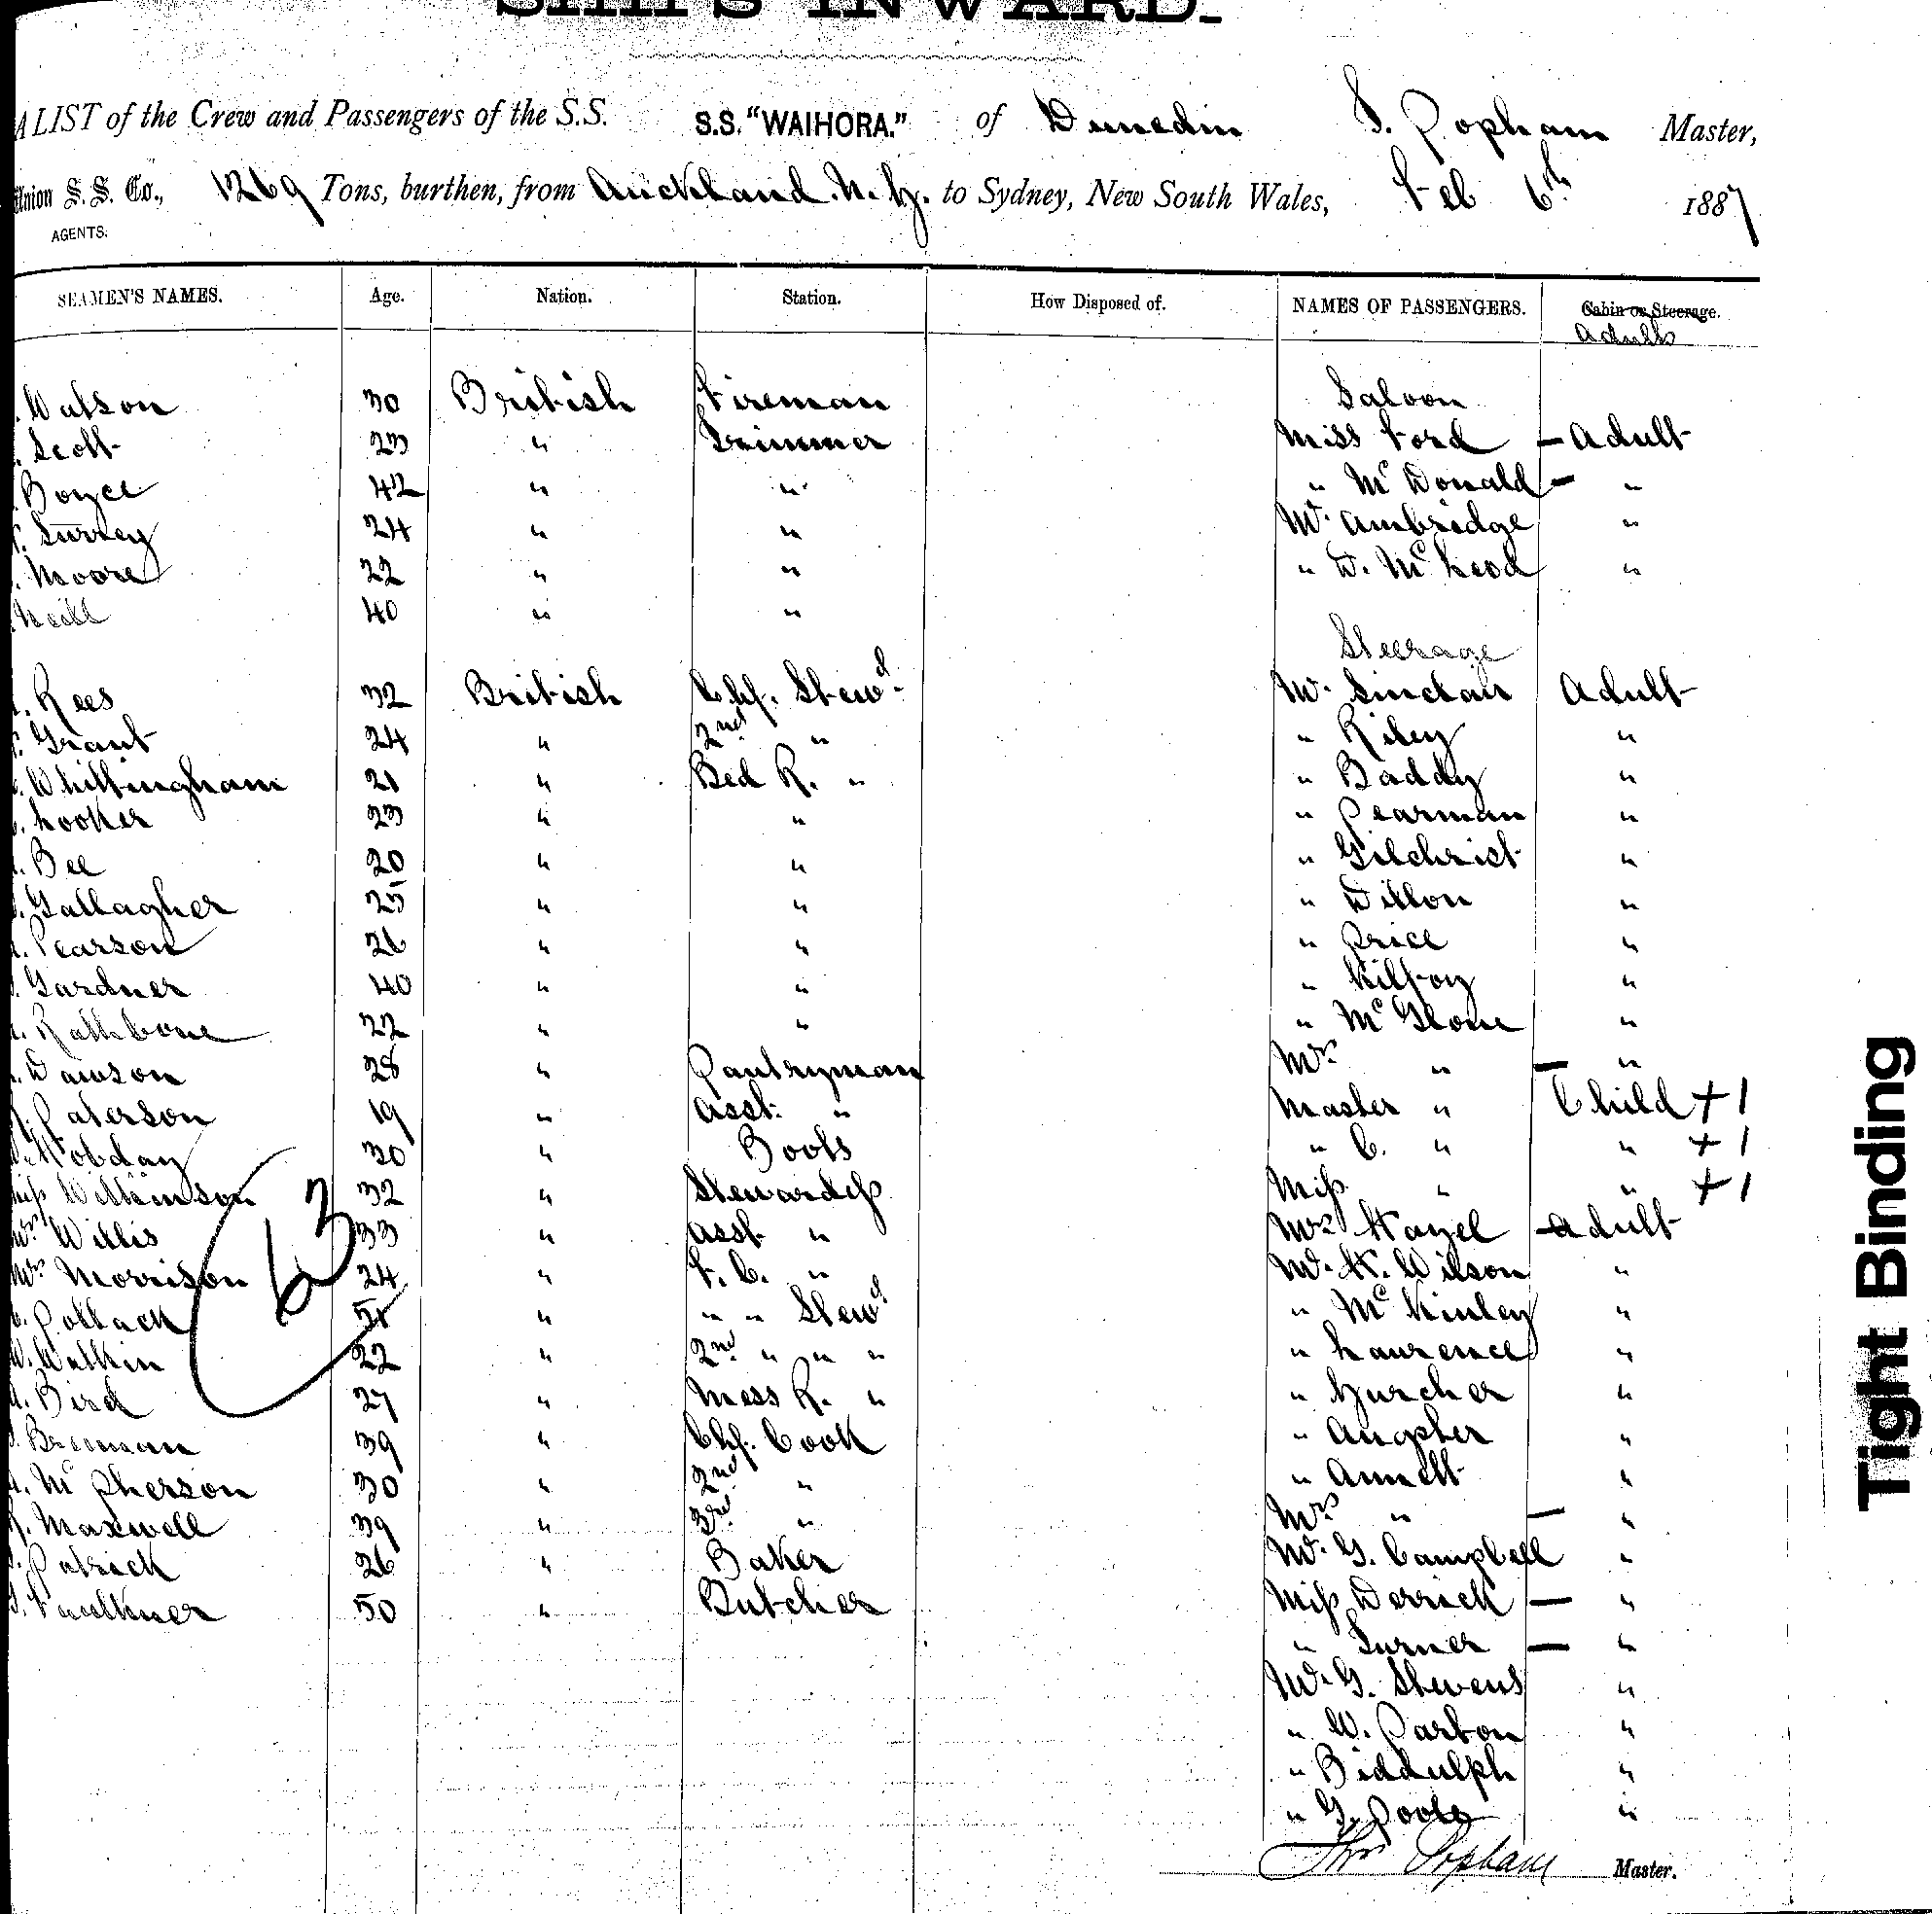 SHIP'S INWARD.
A LIST of the Crew and Passengers of the S.S. S.S. "WAIHORA." of Dunedin T. Popham Master,
Union S. S. Co., 1269 Tons, burthen, from Auckland. N. Z. to Sydney, New South Wales, Feb 6th 1887
AGENTS.
SEAMEN'S NAMES. Age. Nation. Station. How Disposed of. NAMES OF PASSENGERS. Cabin or Steerage.
Adults
Saloon
Watson 30 British Fireman
Scott 23 " Trimmer Miss Ford — Adult
Boyce 42 " " " McDonald — "
Surrey 24 " " Mr. Ambridge "
Moore 22 " " " D. McLeod "
Neill 40 " "
Steerage
Rees 32 British Chf. Stewd. Mr. Sinclair Adult
Grant 24 " 2nd " " Riley "
Whittingham 21 " Bed R. " " Baddy "
Looker 23 " " " Pearman "
Bee 20 " " " Gilchrist "
Gallagher 25 " " " Dillon "
Pearson 26 " " " Price "
Gardner 40 " " " Kilfoy "
Rathbone 22 " " " McGlone "
Dawson 28 " Pantryman Mrs " — "
Paterson 19 " Asst. " Master " Child + 1
Hobday 30 " Boots " C. " " + 1
Miss Wilkinson 32 " Stewardess Miss " " + 1
Mrs Willis 33 " Asst " Mrs Hazel — Adult
Mrs Morrison 24 " F. C. " Mr. H. Wilson "
Pollack 51 " " " Stewd " McKinley "
W. Watkin 22 " 2nd " " " " Laurence "
Bird 27 " Mess R. " " Zurcher "
Brennan 39 " Chf. Cook " "
McPherson 30 " 2nd " " Annett "
R. Maxwell 39 " 3rd " Mrs " — "
Patrick 26 " Baker Mr. G. Campbell "
Faulkner 50 " Butcher Miss Derrick — "
" Turner — "
Mr. G. Stevens "
" W. Parton "
" Biddulph "
" G. Poole "
63
Thos Popham Master.
Tight Binding